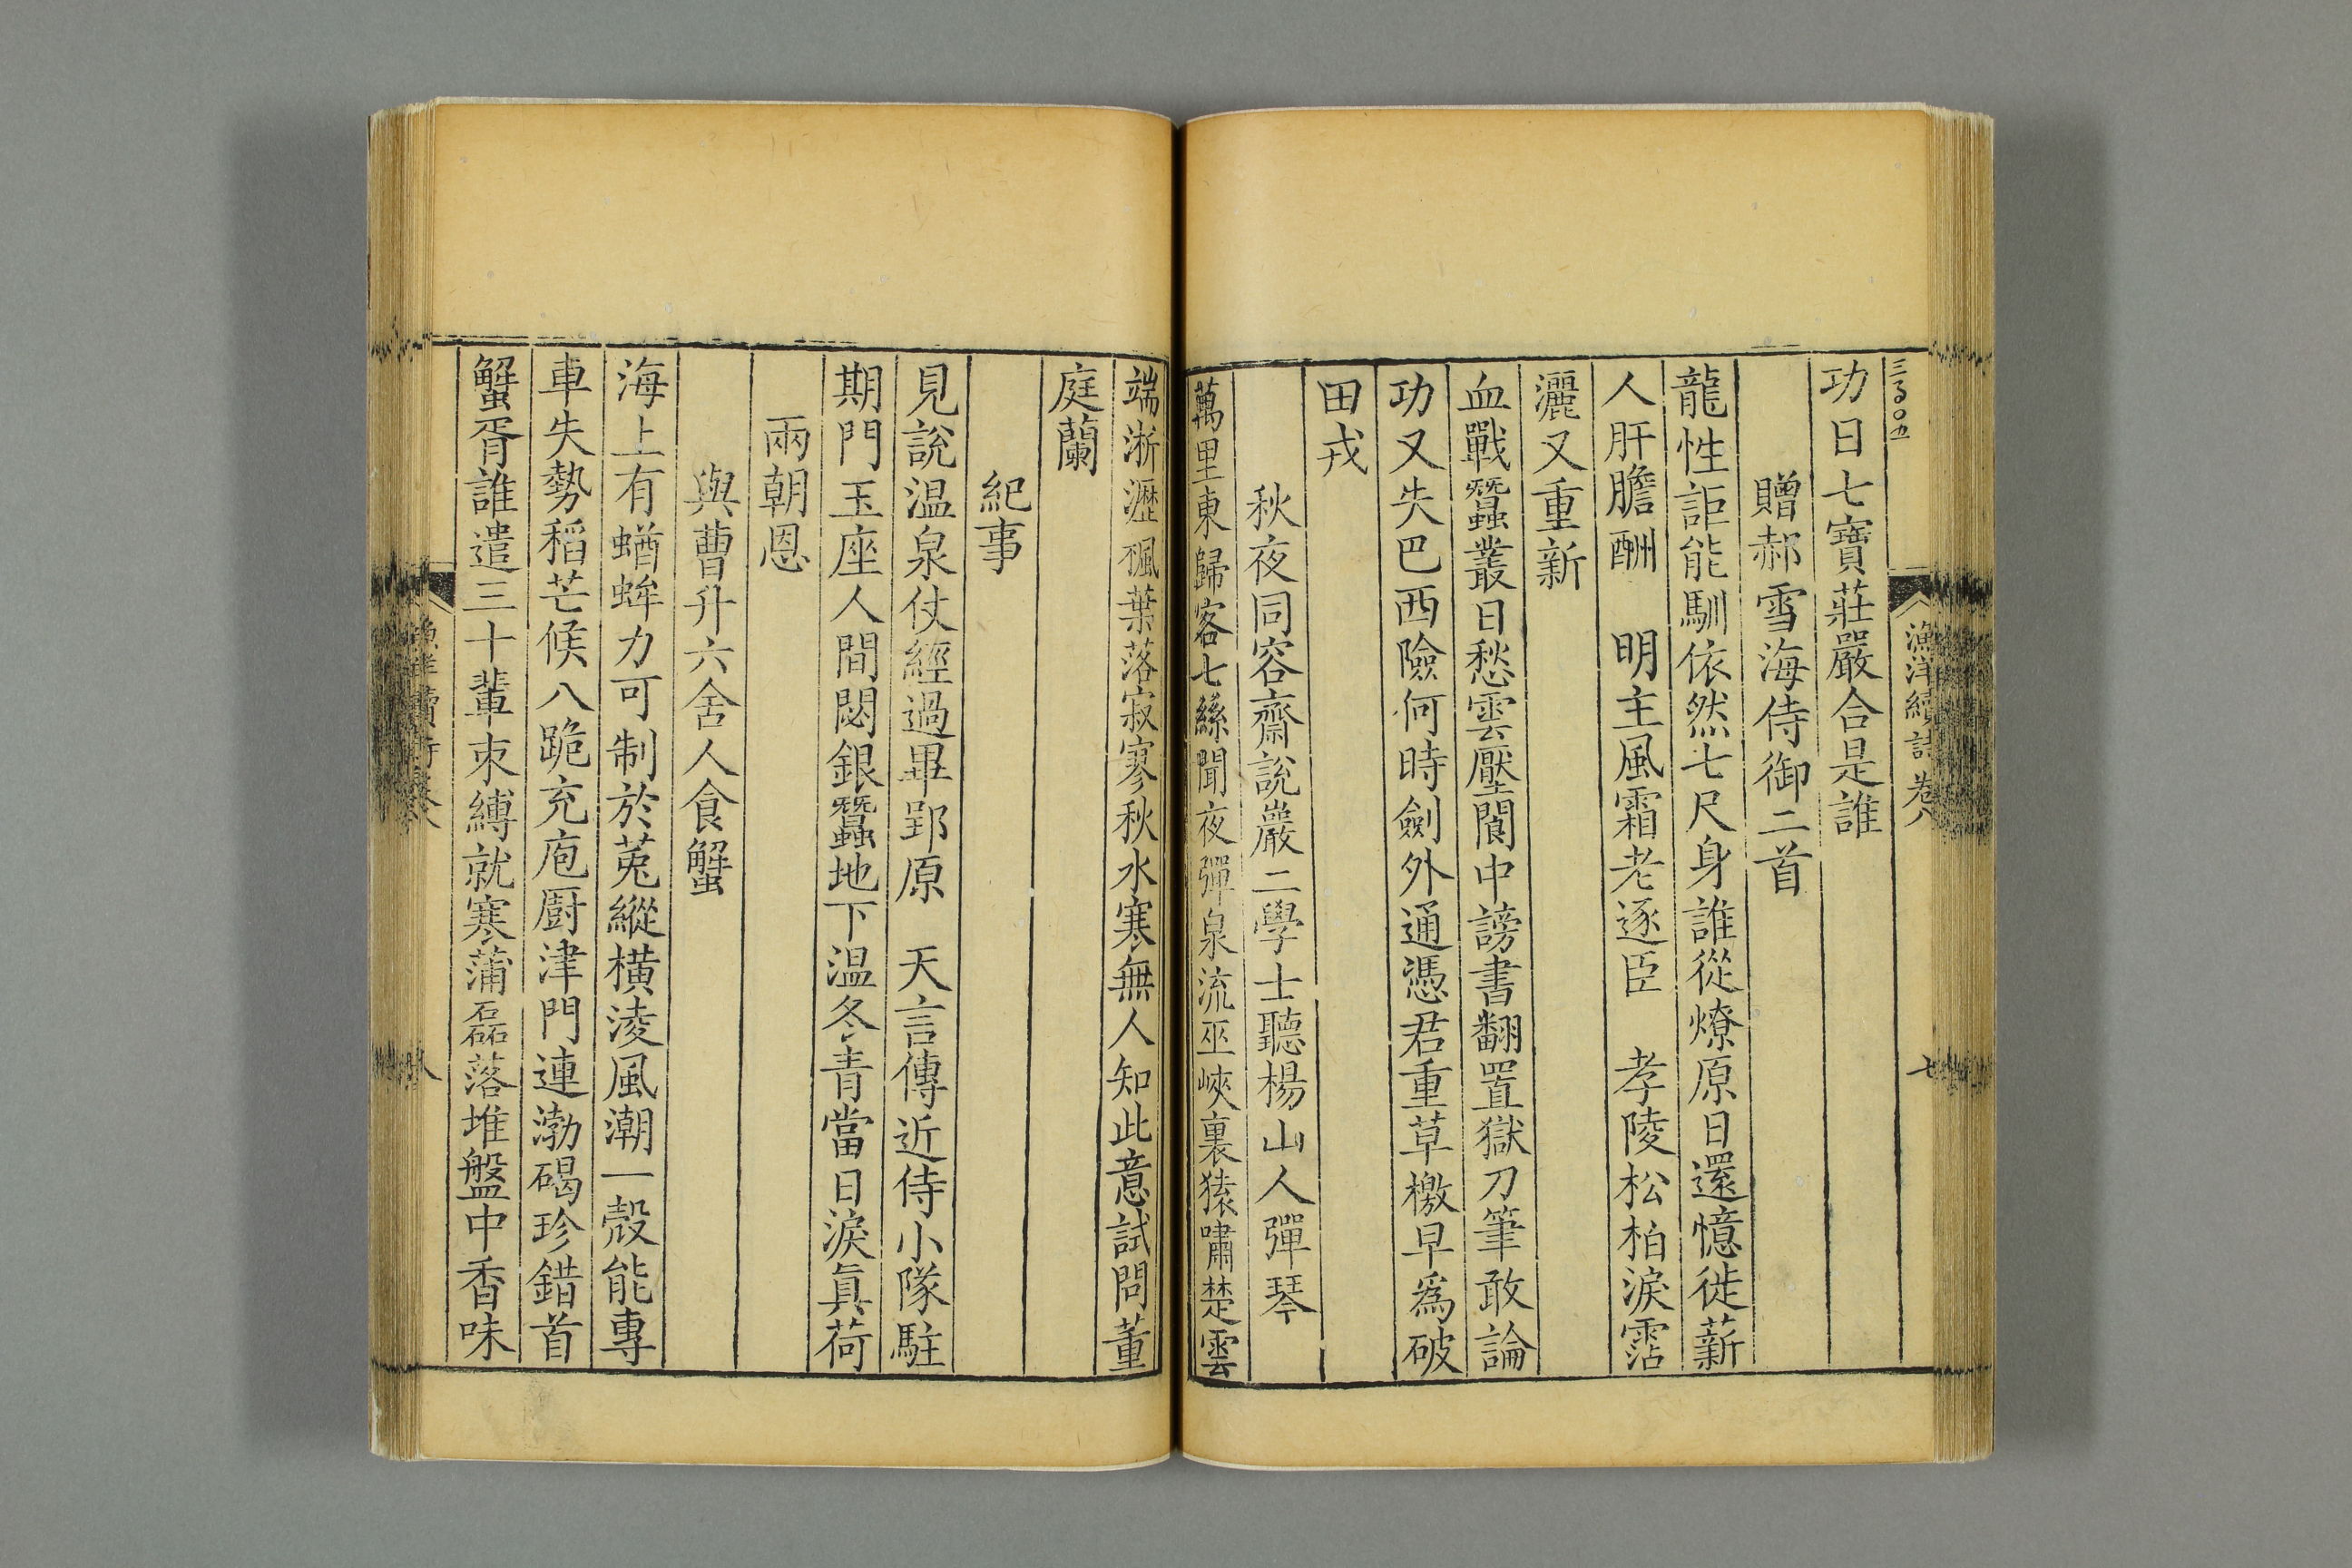 漁洋續詩卷八
七
功日七寶莊嚴合是誰
贈郝雪海侍御二首
龍性詎能馴依然七尺身誰從燎原日還憶徙薪
人肝膽酬 明主風霜老逐臣 孝陵松柏淚霑
灑又重新
血戰蠶叢日愁雲壓閬中謗書翻置獄刀筆敢論
功又失巴西險何時劍外通憑君重草檄早爲破
田戎
秋夜同容齋說巖二學士聽楊山人彈琴
萬里東歸客七絲聞夜彈泉流巫峽裏猿嘯楚雲
端淅瀝楓葉落寂寥秋水寒無人知此意試問董
庭蘭
紀事
見說温泉仗經過畢郢原 天言傳近侍小隊駐
期門玉座人間閟銀蠶地下温冬青當日淚眞荷
兩朝恩
與曹升六舍人食蟹
海上有蝤蛑力可制於菟縱橫淩風潮一殼能專
車失勢稻芒候八跪充庖厨津門連渤碣珍錯首
蟹胥誰遣三十輩束縛就寒蒲磊落堆盤中香味
八